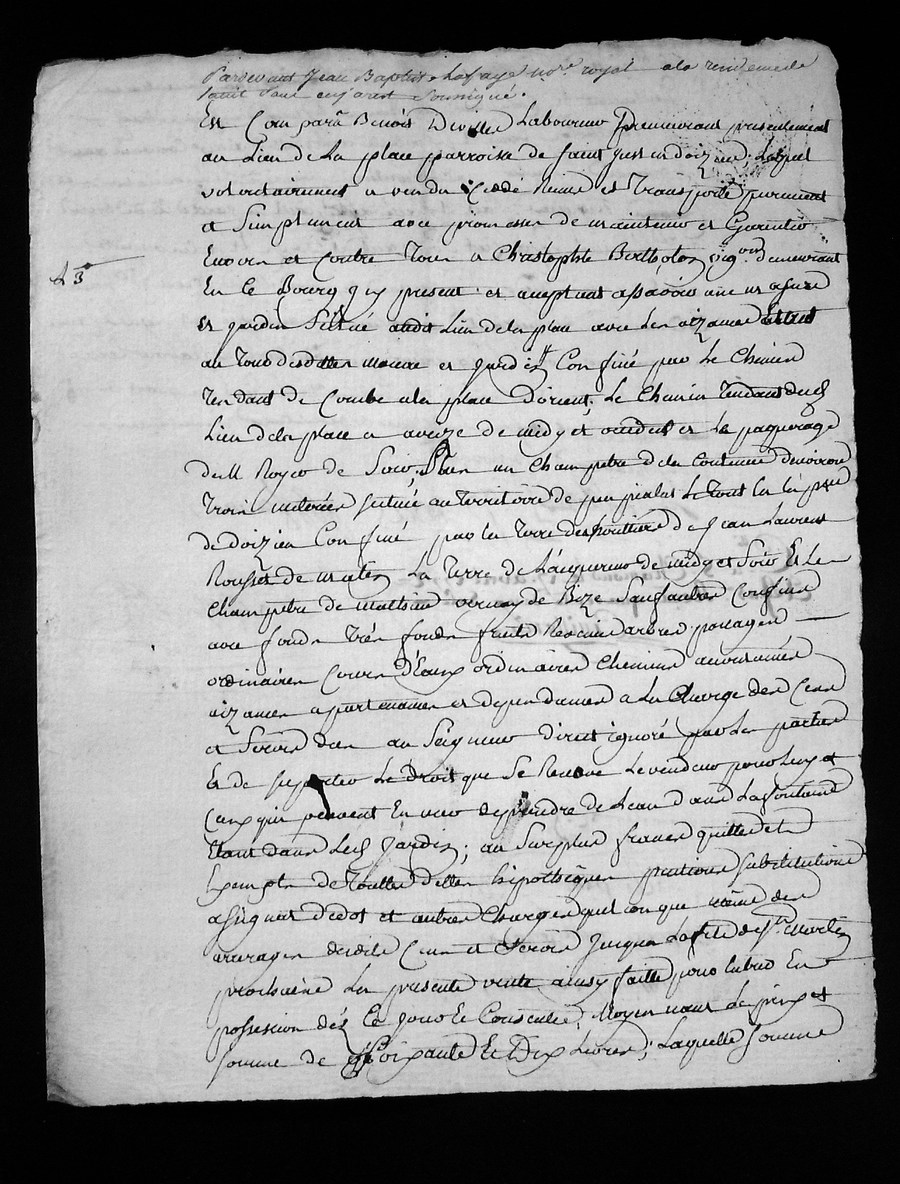 Pardevant Jean Baptiste Lafaye no.re royal a la residence de
saint paul en jarest soussigné.
Est Comparû Benoit Laboureur demeurant presentement
au Lieu de La place parroisse de saint just en doizieu, Lequel
volontairement a vendu Cedé Remis et Transporté purement
et Simplement avec promesse de maintenir et Garentir
Envers et Contre Tous a Christophle Bertholon vigon demeurant
En Ce Bourg icy present et aceptant assavoir une masure
et jardin Situé audit Lieu de la place avec les aizances
au Tour desdittes masure et jardin Confiné par Le Chemin
Tendant de Combe a la place d'orient, Le Chemin Tendant dudit
Lieu de la place a aveize de midy et occident et Le paquerage
de Soir, Plus un Champêtre de la Contenue d'environ
Trois meterées Scitué au Territoire de Le Tout en la p.sse
de doizieu Confiné par la Terre de Jean Laurent
de matin La Terre de de midy et Soir Et Le
Champêtre de Mathieu de Bize Sauf autres Confins
avec fonds Tres fonds fruits arbres passages
ordinaires Cours d'Eaux ordinaires Chemins accoutumés
aizances apartenances et dependances a La Charge des Cens
et Servis deus au Seigneur direct ignoré par Les parties
Et de suporter Le droit que Se Reserve Le vendeur pour Luy et
Ceux qui peuvent En user de prendre de L'eau dans La fontaine
Etant dans Led. Jardin; au Surplus francs quittes et
Exempts de Touttes dettes hipotheques pentions Substitutions
assignat de dot et autres Charges quelconque même des
arrerages desdits Cens et Servis Jusques La fête de S.t Martin
prochaine La presente vente ainsy faitte pour entrer En
possession dés Ce jour Et Consentie, Moyennant Le prix et
somme de Soixante Et Dix Livres; Laquelle somme